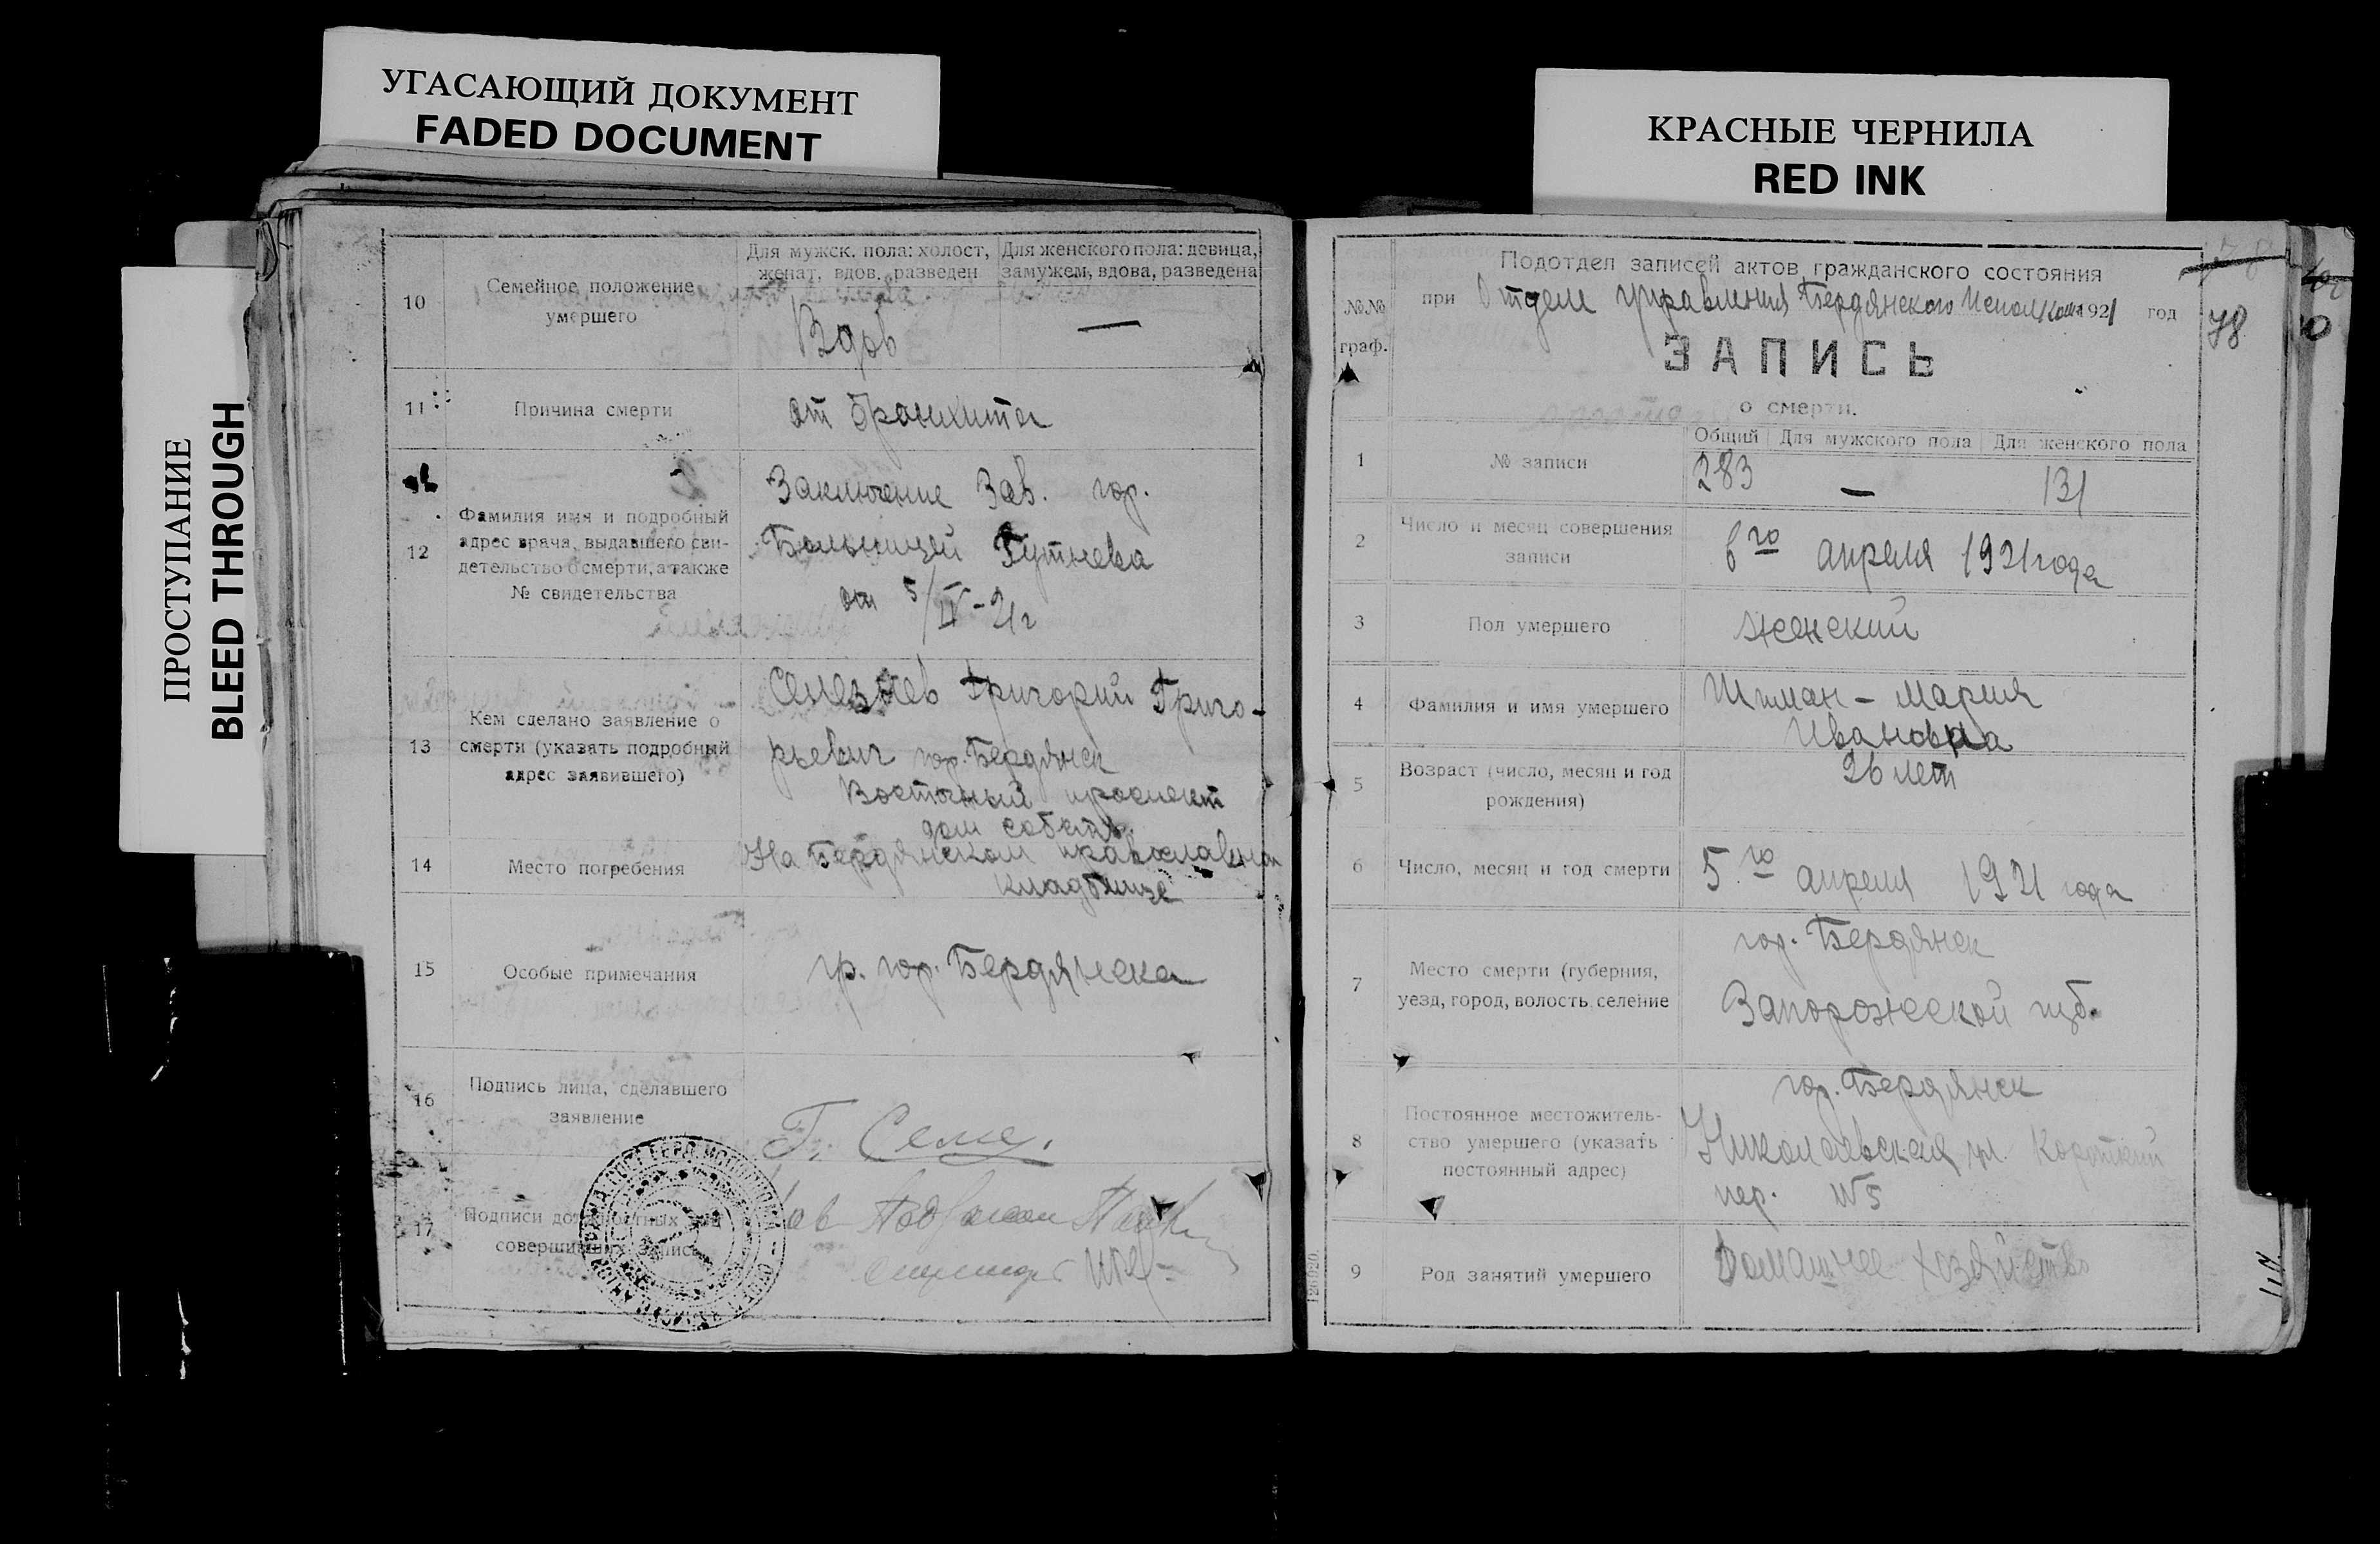 УГАСАЮЩИЙ ДОКУМЕНТ
FADED DOCUMENT
КРАСНЫЕ ЧЕРНИЛА
RED INK
ПРОСТУПАНИЕ
BLEED THROUGH
10
Семейное положение
умершего
Для мужск. пола: холост,
женат, вдов, разведен
Для женского пола: девица,
замужем, вдова, разведена
Вдов
—
11
Причина смерти
от бронхита
12
Фамилия имя и подробный
адрес врача, выдавшего сви-
детельство о смерти, а также
№ свидетельства
Заключение Зав. гор.
Больницей Гутнева
от 5/IV-21г
13
Кем сделано заявление о
смерти (указать подробный
адрес заявившего)
Селезнев Григорий Григо-
рьевич гор. Бердянск
Восточный проспект
дом собств.
14
Место погребения
На Бердянском православном
кладбище
15
Особые примечания
гр. гор. Бердянска
16
Подпись лица, сделавшего
заявление
Г. Селе.
17
Подписи должностных лиц
совершивших запись
Зав
№№
граф.
Подотдел записей актов гражданского состояния
при Отделе управления Бердянского Исполкома 1921 год
78
ЗАПИСЬ
о смерти.
1
№ записи
Общий
Для мужского пола
Для женского пола
283
—
131
2
Число и месяц совершения
записи
6го апреля 1921 года
3
Пол умершего
женский
4
Фамилия и имя умершего
Шиман - Мария
Ивановна
5
Возраст (число, месяц и год
рождения)
26 лет
6
Число, месяц и год смерти
5.го апреля 1921 года
7
Место смерти (губерния,
уезд, город, волость, селение
гор. Бердянск
Запорожской губ.
8
Постоянное местожитель-
ство умершего (указать
постоянный адрес)
гор. Бердянск
Николаевская ул. Короткий
пер. №5
9
Род занятий умершего
Домашнее хозяйство